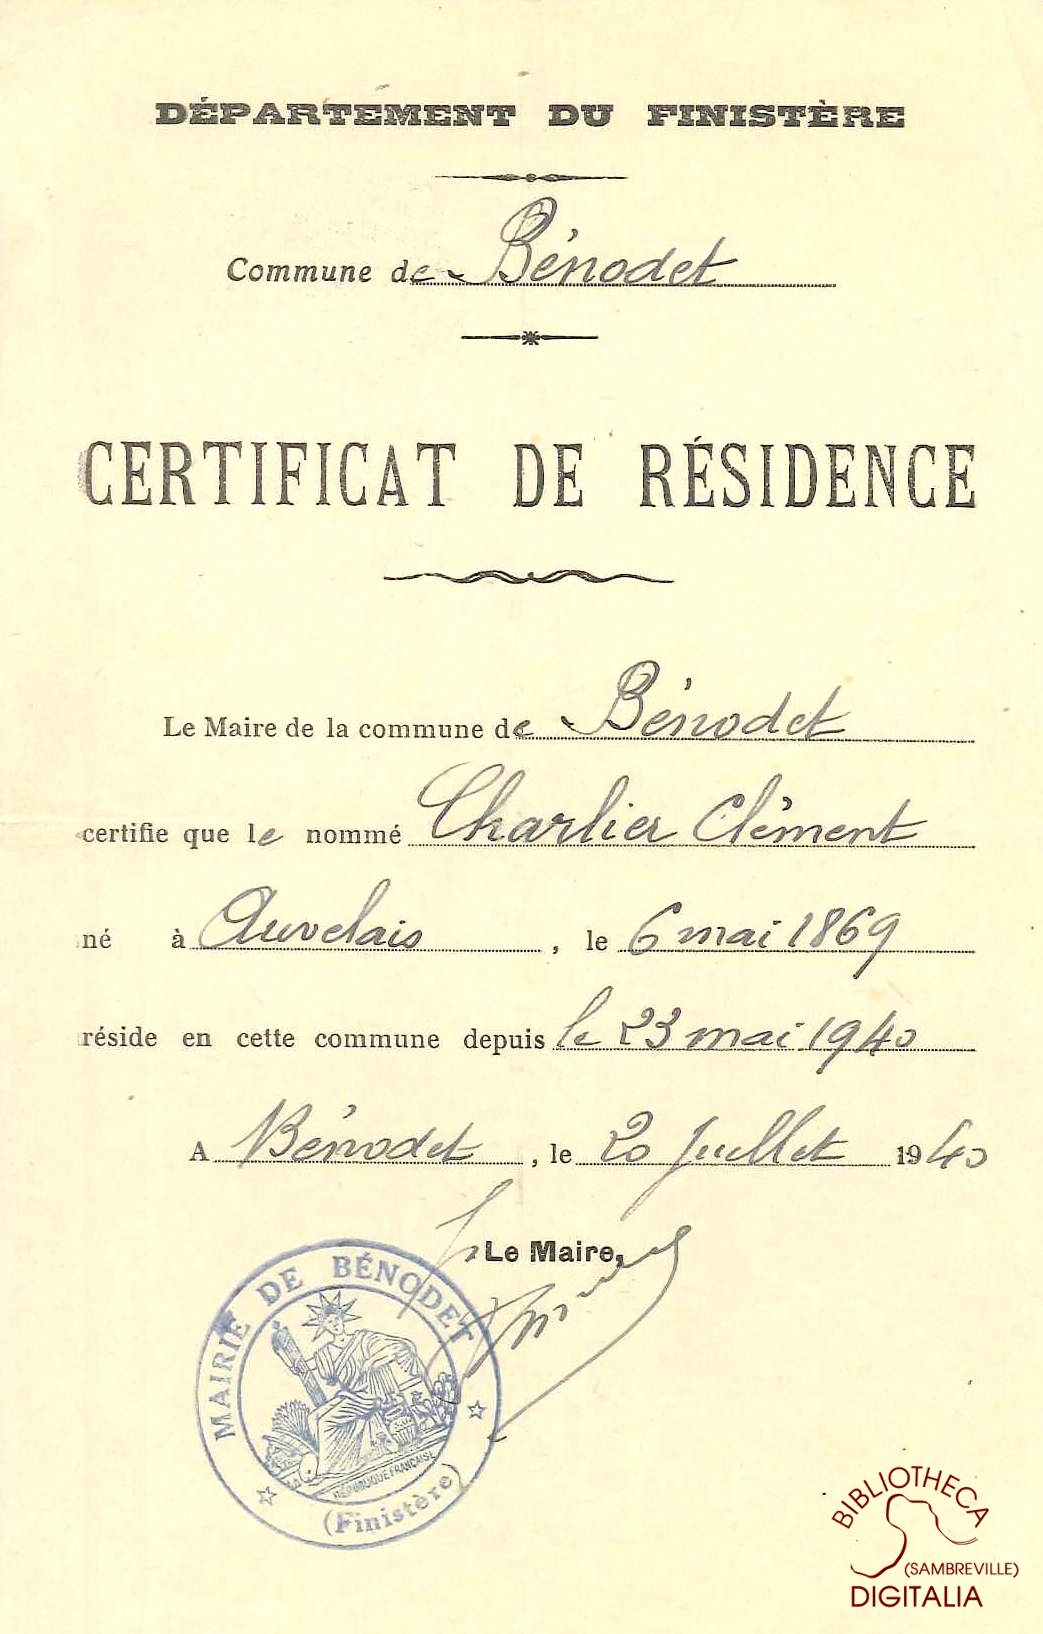 DÉPARTEMENT DU FINISTÈRE
Commune de Bénodet
CERTIFICAT DE RÉSIDENCE
Le Maire de la commune de Bénodet
certifie que le nommé Charlier Clément
né à Auvelais, le 6 mai 1869
réside en cette commune depuis le 23 mai 1940
A Bénodet, le 20 Juillet 1940
Le Maire,
MAIRIE DE BÉNODET
RÉPUBLIQUE FRANÇAISE
(Finistère)
BIBLIOTHECA
(SAMBREVILLE)
DIGITALIA